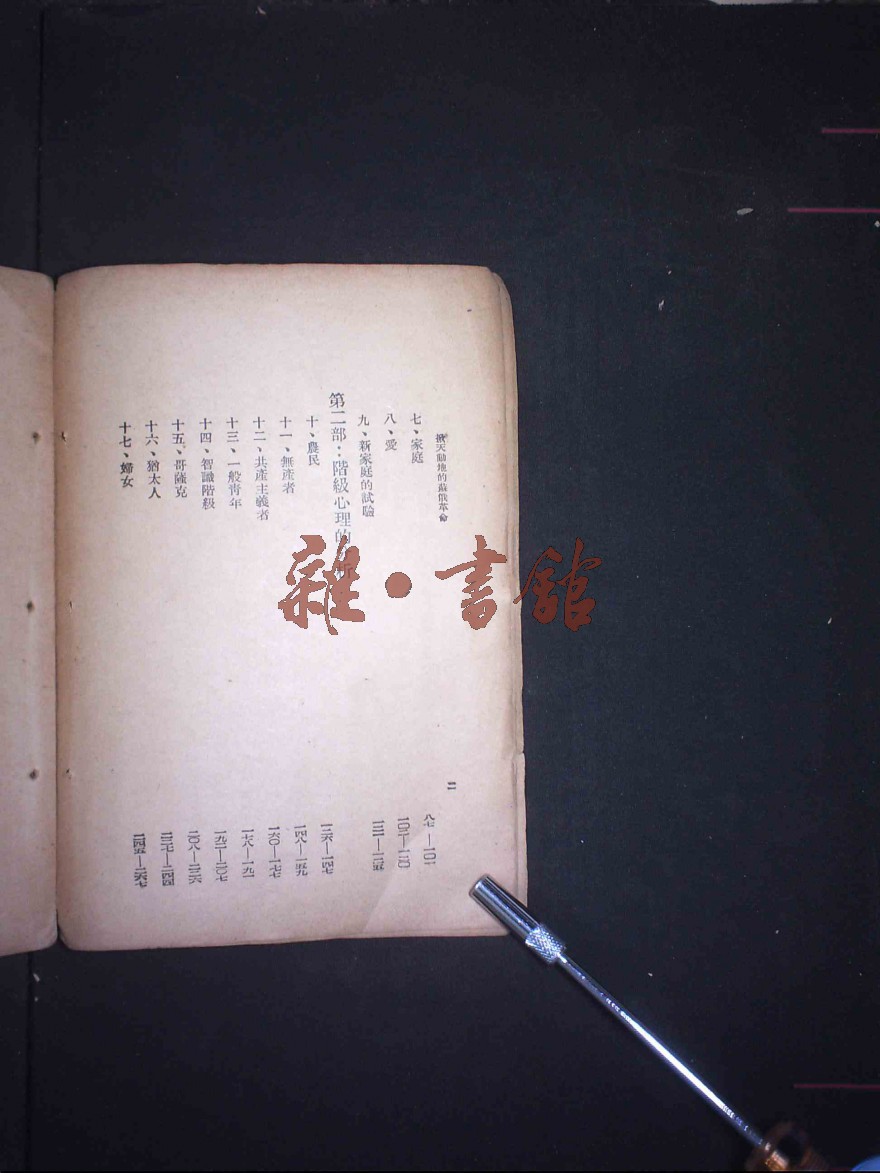 掀天動地的蘇俄革命 二
七、家庭 八七—一〇一
八、愛 一〇二—一二〇
九、新家庭的試驗 一二一—一二五
第二部：階級心理的
十、農民 一二六—一四七
十一、無產者 一四八—一五九
十二、共產主義者 一六〇—一七七
十三、一般靑年 一七八—一九一
十四、智識階級 一九二—二〇七
十五、哥薩克 二〇八—二三六
十六、猶太人 二三七—二四四
十七、婦女 二四五—二六七
雜·書館